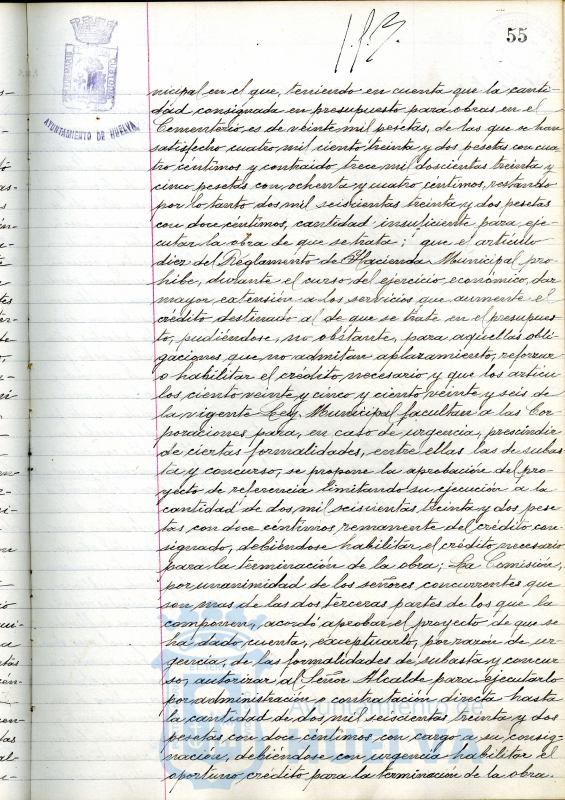 55
AYUNTAMIENTO DE HUELVA
nicipal en el que, teniendo en cuenta que la canti-
dad consignada en presupuesto para obras en el
Cementerio, es de veinte mil pesetas, de las que se han
satisfecho cuatro mil ciento treinta y dos pesetas con cua-
tro céntimos y contraido trece mil doscientas treinta y
cinco pesetas con ochenta y cuatro céntimos, restando
por lo tanto dos mil seiscientas treinta y dos pesetas
con doce centimos, cantidad insuficiente para eje-
cutar la obra de que se trata; que el artículo
diez del Reglamento de Hacienda Municipal pro-
hibe, durante el curso del ejercicio económico, dar
mayor extensión a los servicios que aumente el
crédito destinado al de que se trate en el presupues-
to, pudiéndose, no obstante, para aquellas obli-
gaciones que no admitan aplazamiento, reforzar
o habilitar el crédito necesario y que los articu-
los ciento veinte y cinco y ciento veinte y seis de
la vigente Ley Municipal facultan a las Cor-
poraciones para, en caso de urgencia, prescindir
de ciertas formalidades, entre ellas las de subas-
ta y concurso, se propone la aprobación del pro-
yecto de referencia limitando su ejecución a la
cantidad de dos mil seiscientas treinta y dos pese-
tas con doce céntimos, remanente del crédito con-
signado, debiéndose habilitar el crédito necesario
para la terminación de la obra; La Comisión,
por unanimidad de los señores concurrentes que
son mas de las dos terceras partes de los que la
componen, acordó aprobar el proyecto de que se
ha dado cuenta, exceptuarlo, por razón de ur-
gencia, de las formalidades de subasta y concur-
so, autorizar al Señor Alcalde para ejecutarlo
por administración o contratación directa hasta
la cantidad de dos mil seiscientas treinta y dos
pesetas con doce céntimos con cargo a su consig-
nación, debiéndose con urgencia habilitar el
oportuno crédito para la terminación de la obra.
Ayuntamiento de
HUELVA